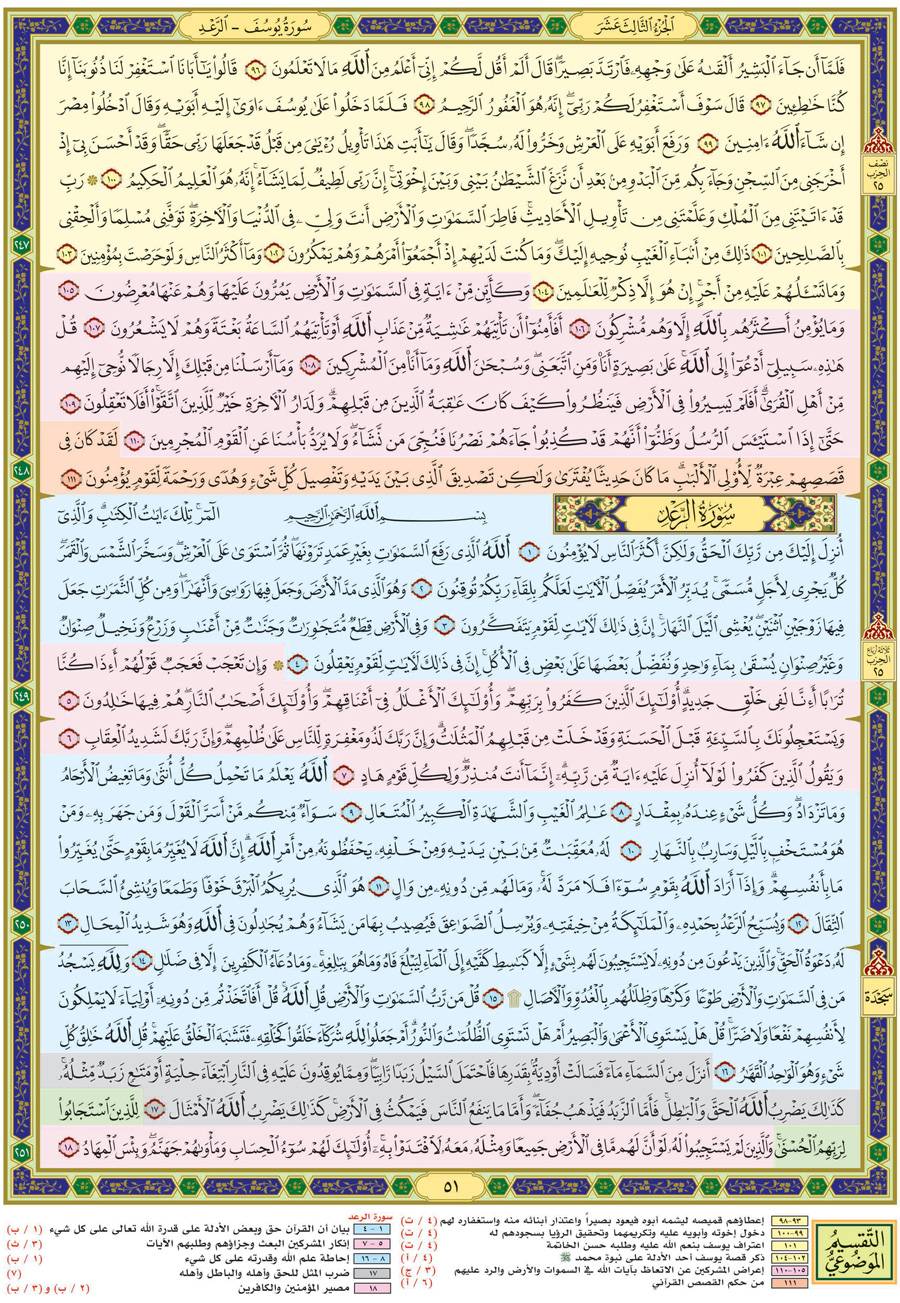 الجُزْءُ الثَّالِثَ عَشَرَ
سُورَةُ يُوسُفَ - الرَّعْد
فَلَمَّآ أَن جَآءَ ٱلْبَشِيرُ أَلْقَىٰهُ عَلَىٰ وَجْهِهِۦ فَٱرْتَدَّ بَصِيرًا ۖ قَالَ أَلَمْ أَقُل لَّكُمْ إِنِّىٓ أَعْلَمُ مِنَ ٱللَّهِ مَا لَا تَعْلَمُونَ ٩٦ قَالُوا۟ يَـٰٓأَبَانَا ٱسْتَغْفِرْ لَنَا ذُنُوبَنَآ إِنَّا
كُنَّا خَـٰطِـِٔينَ ٩٧ قَالَ سَوْفَ أَسْتَغْفِرُ لَكُمْ رَبِّىٓ ۖ إِنَّهُۥ هُوَ ٱلْغَفُورُ ٱلرَّحِيمُ ٩٨ فَلَمَّا دَخَلُوا۟ عَلَىٰ يُوسُفَ ءَاوَىٰٓ إِلَيْهِ أَبَوَيْهِ وَقَالَ ٱدْخُلُوا۟ مِصْرَ
إِن شَآءَ ٱللَّهُ ءَامِنِينَ ٩٩ وَرَفَعَ أَبَوَيْهِ عَلَى ٱلْعَرْشِ وَخَرُّوا۟ لَهُۥ سُجَّدًا ۖ وَقَالَ يَـٰٓأَبَتِ هَـٰذَا تَأْوِيلُ رُءْيَـٰىَ مِن قَبْلُ قَدْ جَعَلَهَا رَبِّى حَقًّا ۖ وَقَدْ أَحْسَنَ بِىٓ إِذْ
أَخْرَجَنِى مِنَ ٱلسِّجْنِ وَجَآءَ بِكُم مِّنَ ٱلْبَدْوِ مِنۢ بَعْدِ أَن نَّزَغَ ٱلشَّيْطَـٰنُ بَيْنِى وَبَيْنَ إِخْوَتِىٓ ۚ إِنَّ رَبِّى لَطِيفٌ لِّمَا يَشَآءُ ۚ إِنَّهُۥ هُوَ ٱلْعَلِيمُ ٱلْحَكِيمُ ١٠٠ ۞ رَبِّ
قَدْ ءَاتَيْتَنِى مِنَ ٱلْمُلْكِ وَعَلَّمْتَنِى مِن تَأْوِيلِ ٱلْأَحَادِيثِ ۚ فَاطِرَ ٱلسَّمَـٰوَٰتِ وَٱلْأَرْضِ أَنتَ وَلِىِّۦ فِى ٱلدُّنْيَا وَٱلْـَٔاخِرَةِ ۖ تَوَفَّنِى مُسْلِمًا وَأَلْحِقْنِى
بِٱلصَّـٰلِحِينَ ١٠١ ذَٰلِكَ مِنْ أَنۢبَآءِ ٱلْغَيْبِ نُوحِيهِ إِلَيْكَ ۖ وَمَا كُنتَ لَدَيْهِمْ إِذْ أَجْمَعُوٓا۟ أَمْرَهُمْ وَهُمْ يَمْكُرُونَ ١٠٢ وَمَآ أَكْثَرُ ٱلنَّاسِ وَلَوْ حَرَصْتَ بِمُؤْمِنِينَ ١٠٣
وَمَا تَسْـَٔلُهُمْ عَلَيْهِ مِنْ أَجْرٍ ۚ إِنْ هُوَ إِلَّا ذِكْرٌ لِّلْعَـٰلَمِينَ ١٠٤ وَكَأَيِّن مِّنْ ءَايَةٍ فِى ٱلسَّمَـٰوَٰتِ وَٱلْأَرْضِ يَمُرُّونَ عَلَيْهَا وَهُمْ عَنْهَا مُعْرِضُونَ ١٠٥
وَمَا يُؤْمِنُ أَكْثَرُهُم بِٱللَّهِ إِلَّا وَهُم مُّشْرِكُونَ ١٠٦ أَفَأَمِنُوٓا۟ أَن تَأْتِيَهُمْ غَـٰشِيَةٌ مِّنْ عَذَابِ ٱللَّهِ أَوْ تَأْتِيَهُمُ ٱلسَّاعَةُ بَغْتَةً وَهُمْ لَا يَشْعُرُونَ ١٠٧ قُلْ
هَـٰذِهِۦ سَبِيلِىٓ أَدْعُوٓا۟ إِلَى ٱللَّهِ ۚ عَلَىٰ بَصِيرَةٍ أَنَا۠ وَمَنِ ٱتَّبَعَنِى ۖ وَسُبْحَـٰنَ ٱللَّهِ وَمَآ أَنَا۠ مِنَ ٱلْمُشْرِكِينَ ١٠٨ وَمَآ أَرْسَلْنَا مِن قَبْلِكَ إِلَّا رِجَالًا نُّوحِىٓ إِلَيْهِم
مِّنْ أَهْلِ ٱلْقُرَىٰٓ ۗ أَفَلَمْ يَسِيرُوا۟ فِى ٱلْأَرْضِ فَيَنظُرُوا۟ كَيْفَ كَانَ عَـٰقِبَةُ ٱلَّذِينَ مِن قَبْلِهِمْ ۗ وَلَدَارُ ٱلْـَٔاخِرَةِ خَيْرٌ لِّلَّذِينَ ٱتَّقَوْا۟ ۗ أَفَلَا تَعْقِلُونَ ١٠٩
حَتَّىٰٓ إِذَا ٱسْتَيْـَٔسَ ٱلرُّسُلُ وَظَنُّوٓا۟ أَنَّهُمْ قَدْ كُذِبُوا۟ جَآءَهُمْ نَصْرُنَا فَنُجِّىَ مَن نَّشَآءُ ۖ وَلَا يُرَدُّ بَأْسُنَا عَنِ ٱلْقَوْمِ ٱلْمُجْرِمِينَ ١١٠ لَقَدْ كَانَ فِى
قَصَصِهِمْ عِبْرَةٌ لِّأُو۟لِى ٱلْأَلْبَـٰبِ ۗ مَا كَانَ حَدِيثًا يُفْتَرَىٰ وَلَـٰكِن تَصْدِيقَ ٱلَّذِى بَيْنَ يَدَيْهِ وَتَفْصِيلَ كُلِّ شَىْءٍ وَهُدًى وَرَحْمَةً لِّقَوْمٍ يُؤْمِنُونَ ١١١
سُورَةُ الرَّعْدِ
بِسْمِ ٱللَّهِ ٱلرَّحْمَـٰنِ ٱلرَّحِيمِ
الٓمٓر ۚ تِلْكَ ءَايَـٰتُ ٱلْكِتَـٰبِ ۗ وَٱلَّذِىٓ
أُنزِلَ إِلَيْكَ مِن رَّبِّكَ ٱلْحَقُّ وَلَـٰكِنَّ أَكْثَرَ ٱلنَّاسِ لَا يُؤْمِنُونَ ١ ٱللَّهُ ٱلَّذِى رَفَعَ ٱلسَّمَـٰوَٰتِ بِغَيْرِ عَمَدٍ تَرَوْنَهَا ۖ ثُمَّ ٱسْتَوَىٰ عَلَى ٱلْعَرْشِ ۖ وَسَخَّرَ ٱلشَّمْسَ وَٱلْقَمَرَ ۖ
كُلٌّ يَجْرِى لِأَجَلٍ مُّسَمًّى ۚ يُدَبِّرُ ٱلْأَمْرَ يُفَصِّلُ ٱلْـَٔايَـٰتِ لَعَلَّكُم بِلِقَآءِ رَبِّكُمْ تُوقِنُونَ ٢ وَهُوَ ٱلَّذِى مَدَّ ٱلْأَرْضَ وَجَعَلَ فِيهَا رَوَٰسِىَ وَأَنْهَـٰرًا ۖ وَمِن كُلِّ ٱلثَّمَرَٰتِ جَعَلَ
فِيهَا زَوْجَيْنِ ٱثْنَيْنِ ۖ يُغْشِى ٱلَّيْلَ ٱلنَّهَارَ ۚ إِنَّ فِى ذَٰلِكَ لَـَٔايَـٰتٍ لِّقَوْمٍ يَتَفَكَّرُونَ ٣ وَفِى ٱلْأَرْضِ قِطَعٌ مُّتَجَـٰوِرَٰتٌ وَجَنَّـٰتٌ مِّنْ أَعْنَـٰبٍ وَزَرْعٌ وَنَخِيلٌ صِنْوَانٌ
وَغَيْرُ صِنْوَانٍ يُسْقَىٰ بِمَآءٍ وَٰحِدٍ وَنُفَضِّلُ بَعْضَهَا عَلَىٰ بَعْضٍ فِى ٱلْأُكُلِ ۚ إِنَّ فِى ذَٰلِكَ لَـَٔايَـٰتٍ لِّقَوْمٍ يَعْقِلُونَ ٤ ۞ وَإِن تَعْجَبْ فَعَجَبٌ قَوْلُهُمْ أَءِذَا كُنَّا
تُرَٰبًا أَءِنَّا لَفِى خَلْقٍ جَدِيدٍ ۗ أُو۟لَـٰٓئِكَ ٱلَّذِينَ كَفَرُوا۟ بِرَبِّهِمْ ۖ وَأُو۟لَـٰٓئِكَ ٱلْأَغْلَـٰلُ فِىٓ أَعْنَاقِهِمْ ۖ وَأُو۟لَـٰٓئِكَ أَصْحَـٰبُ ٱلنَّارِ ۖ هُمْ فِيهَا خَـٰلِدُونَ ٥
وَيَسْتَعْجِلُونَكَ بِٱلسَّيِّئَةِ قَبْلَ ٱلْحَسَنَةِ وَقَدْ خَلَتْ مِن قَبْلِهِمُ ٱلْمَثُلَـٰتُ ۗ وَإِنَّ رَبَّكَ لَذُو مَغْفِرَةٍ لِّلنَّاسِ عَلَىٰ ظُلْمِهِمْ ۖ وَإِنَّ رَبَّكَ لَشَدِيدُ ٱلْعِقَابِ ٦
وَيَقُولُ ٱلَّذِينَ كَفَرُوا۟ لَوْلَآ أُنزِلَ عَلَيْهِ ءَايَةٌ مِّن رَّبِّهِۦٓ ۗ إِنَّمَآ أَنتَ مُنذِرٌ ۖ وَلِكُلِّ قَوْمٍ هَادٍ ٧ ٱللَّهُ يَعْلَمُ مَا تَحْمِلُ كُلُّ أُنثَىٰ وَمَا تَغِيضُ ٱلْأَرْحَامُ
وَمَا تَزْدَادُ ۖ وَكُلُّ شَىْءٍ عِندَهُۥ بِمِقْدَارٍ ٨ عَـٰلِمُ ٱلْغَيْبِ وَٱلشَّهَـٰدَةِ ٱلْكَبِيرُ ٱلْمُتَعَالِ ٩ سَوَآءٌ مِّنكُم مَّنْ أَسَرَّ ٱلْقَوْلَ وَمَن جَهَرَ بِهِۦ وَمَنْ
هُوَ مُسْتَخْفٍۭ بِٱلَّيْلِ وَسَارِبٌۢ بِٱلنَّهَارِ ١٠ لَهُۥ مُعَقِّبَـٰتٌ مِّنۢ بَيْنِ يَدَيْهِ وَمِنْ خَلْفِهِۦ يَحْفَظُونَهُۥ مِنْ أَمْرِ ٱللَّهِ ۗ إِنَّ ٱللَّهَ لَا يُغَيِّرُ مَا بِقَوْمٍ حَتَّىٰ يُغَيِّرُوا۟
مَا بِأَنفُسِهِمْ ۗ وَإِذَآ أَرَادَ ٱللَّهُ بِقَوْمٍ سُوٓءًا فَلَا مَرَدَّ لَهُۥ ۚ وَمَا لَهُم مِّن دُونِهِۦ مِن وَالٍ ١١ هُوَ ٱلَّذِى يُرِيكُمُ ٱلْبَرْقَ خَوْفًا وَطَمَعًا وَيُنشِئُ ٱلسَّحَابَ
ٱلثِّقَالَ ١٢ وَيُسَبِّحُ ٱلرَّعْدُ بِحَمْدِهِۦ وَٱلْمَلَـٰٓئِكَةُ مِنْ خِيفَتِهِۦ وَيُرْسِلُ ٱلصَّوَٰعِقَ فَيُصِيبُ بِهَا مَن يَشَآءُ وَهُمْ يُجَـٰدِلُونَ فِى ٱللَّهِ وَهُوَ شَدِيدُ ٱلْمِحَالِ ١٣
لَهُۥ دَعْوَةُ ٱلْحَقِّ ۖ وَٱلَّذِينَ يَدْعُونَ مِن دُونِهِۦ لَا يَسْتَجِيبُونَ لَهُم بِشَىْءٍ إِلَّا كَبَـٰسِطِ كَفَّيْهِ إِلَى ٱلْمَآءِ لِيَبْلُغَ فَاهُ وَمَا هُوَ بِبَـٰلِغِهِۦ ۚ وَمَا دُعَآءُ ٱلْكَـٰفِرِينَ إِلَّا فِى ضَلَـٰلٍ ١٤ وَلِلَّهِ يَسْجُدُ
مَن فِى ٱلسَّمَـٰوَٰتِ وَٱلْأَرْضِ طَوْعًا وَكَرْهًا وَظِلَـٰلُهُم بِٱلْغُدُوِّ وَٱلْـَٔاصَالِ ۩ ١٥ قُلْ مَن رَّبُّ ٱلسَّمَـٰوَٰتِ وَٱلْأَرْضِ قُلِ ٱللَّهُ ۚ قُلْ أَفَٱتَّخَذْتُم مِّن دُونِهِۦٓ أَوْلِيَآءَ لَا يَمْلِكُونَ
لِأَنفُسِهِمْ نَفْعًا وَلَا ضَرًّا ۚ قُلْ هَلْ يَسْتَوِى ٱلْأَعْمَىٰ وَٱلْبَصِيرُ أَمْ هَلْ تَسْتَوِى ٱلظُّلُمَـٰتُ وَٱلنُّورُ ۗ أَمْ جَعَلُوا۟ لِلَّهِ شُرَكَآءَ خَلَقُوا۟ كَخَلْقِهِۦ فَتَشَـٰبَهَ ٱلْخَلْقُ عَلَيْهِمْ ۚ قُلِ ٱللَّهُ خَـٰلِقُ كُلِّ
شَىْءٍ وَهُوَ ٱلْوَٰحِدُ ٱلْقَهَّـٰرُ ١٦ أَنزَلَ مِنَ ٱلسَّمَآءِ مَآءً فَسَالَتْ أَوْدِيَةٌۢ بِقَدَرِهَا فَٱحْتَمَلَ ٱلسَّيْلُ زَبَدًا رَّابِيًا ۚ وَمِمَّا يُوقِدُونَ عَلَيْهِ فِى ٱلنَّارِ ٱبْتِغَآءَ حِلْيَةٍ أَوْ مَتَـٰعٍ زَبَدٌ مِّثْلُهُۥ ۚ
كَذَٰلِكَ يَضْرِبُ ٱللَّهُ ٱلْحَقَّ وَٱلْبَـٰطِلَ ۚ فَأَمَّا ٱلزَّبَدُ فَيَذْهَبُ جُفَآءً ۖ وَأَمَّا مَا يَنفَعُ ٱلنَّاسَ فَيَمْكُثُ فِى ٱلْأَرْضِ ۚ كَذَٰلِكَ يَضْرِبُ ٱللَّهُ ٱلْأَمْثَالَ ١٧ لِلَّذِينَ ٱسْتَجَابُوا۟
لِرَبِّهِمُ ٱلْحُسْنَىٰ ۚ وَٱلَّذِينَ لَمْ يَسْتَجِيبُوا۟ لَهُۥ لَوْ أَنَّ لَهُم مَّا فِى ٱلْأَرْضِ جَمِيعًا وَمِثْلَهُۥ مَعَهُۥ لَٱفْتَدَوْا۟ بِهِۦٓ ۚ أُو۟لَـٰٓئِكَ لَهُمْ سُوٓءُ ٱلْحِسَابِ وَمَأْوَىٰهُمْ جَهَنَّمُ ۖ وَبِئْسَ ٱلْمِهَادُ ١٨
نصف الحزب ٢٥
ثلاثة أرباع الحزب ٢٥
سَجْدَة
٢٤٧
٢٤٨
٢٤٩
٢٥٠
٢٥١
٥١
التَّقْسِيمُ المَوْضُوعِيُّ
٩٣-٩٨ إعطاؤهم قميصه ليشمه أبوه فيعود بصيراً واعتذار أبنائه منه واستغفاره لهم (٤ / ت)
٩٩-١٠٠ دخول إخوته وأبويه عليه وتكريمهما وتحقيق الرؤيا بسجودهم له (٤ / ت)
١٠١ اعتراف يوسف بنعم الله عليه وطلبه حسن الخاتمة (٤ / ت)
١٠٢-١٠٤ ذكر قصة يوسف أحد الأدلة على نبوة محمد ﷺ (٤ / أ)
١٠٥-١١٠ إعراض المشركين عن الاتعاظ بآيات الله في السموات والأرض والرد عليهم (٣ / ج)
١١١ من حكم القصص القرآني (٦ / أ)
سورة الرعد
١ - ٤ بيان أن القرآن حق وبعض الأدلة على قدرة الله تعالى على كل شيء (١ / ب)
٥ - ٧ إنكار المشركين البعث وجزاؤهم وطلبهم الآيات (٣ / ث)
٨ - ١٦ إحاطة علم الله وقدرته على كل شيء (١ / ب)
١٧ ضرب المثل للحق وأهله والباطل وأهله (٧)
١٨ مصير المؤمنين والكافرين (٢ / ب) و (٣ / ب)